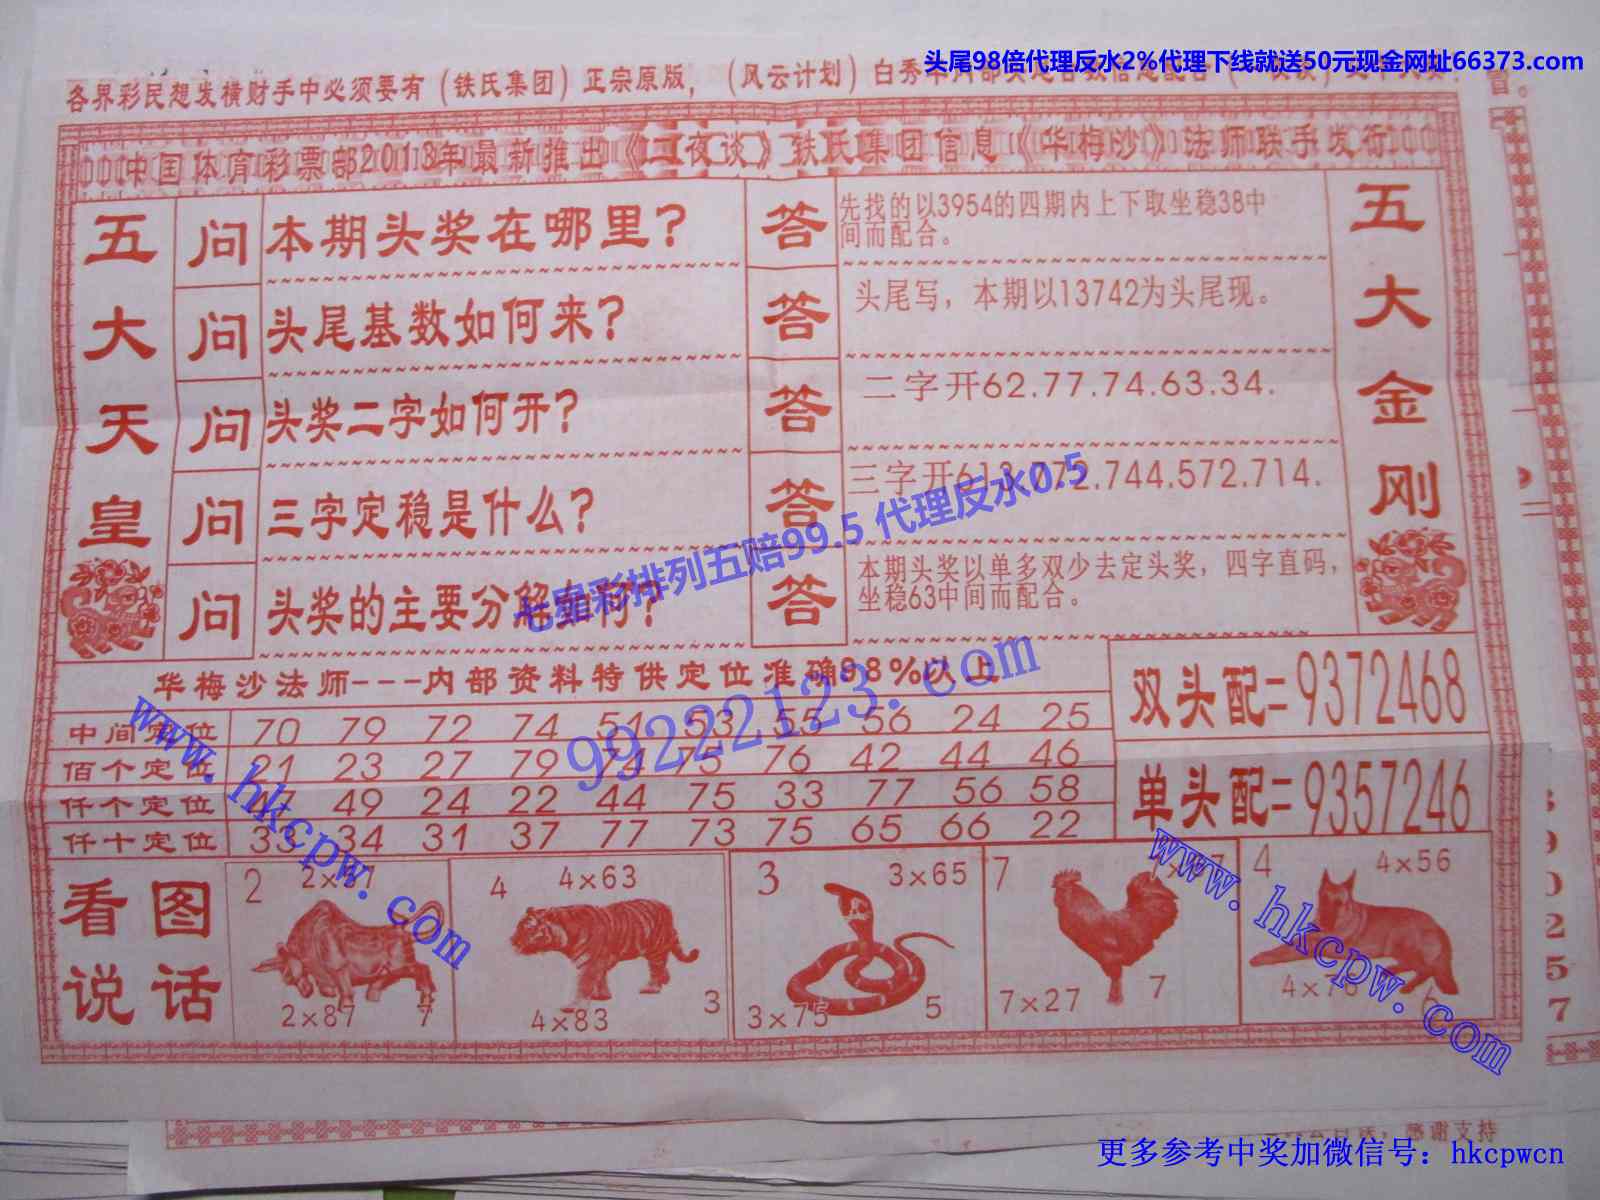 头尾98倍代理反水2%代理下线就送50元现金网址66373.com
各界彩民想发横财手中必须要有（铁氏集团）正宗原版，（风云计划）白秀
中国体育彩票部2013年最新推出《二夜谈》铁氏集团信息《华梅沙》法师联手发行
五大天皇
五大金刚
问 本期头奖在哪里？ 答 先找的以3954的四期内上下取坐稳38中
间而配合。
问 头尾基数如何来？ 答 头尾写，本期以13742为头尾现。
问 头奖二字如何开？ 答 二字开62.77.74.63.34.
问 三字定稳是什么？ 答 三字开613.772.744.572.714.
问 头奖的主要分解如何？ 答 本期头奖以单多双少去定头奖，四字直码，
坐稳63中间而配合。
七星彩排列五赔99.5 代理反水0.5
99222123.com
华梅沙法师---内部资料特供定位准确98%以上
中间定位 70 79 72 74 51 53 55 56 24 25
佰个定位 21 23 27 79 74 75 76 42 44 46
仟个定位 47 49 24 22 44 75 33 77 56 58
仟十定位 33 34 31 37 77 73 75 65 66 22
双头配=9372468
单头配=9357246
www.hkcpw.com
www.hkcpw.com
看图
说话
2
2×87 7
4 4×63
4×83 3
3 3×65
3×75 5
7
7×27 7
4 4×56
4×76
感谢支持
更多参考中奖加微信号：hkcpwcn